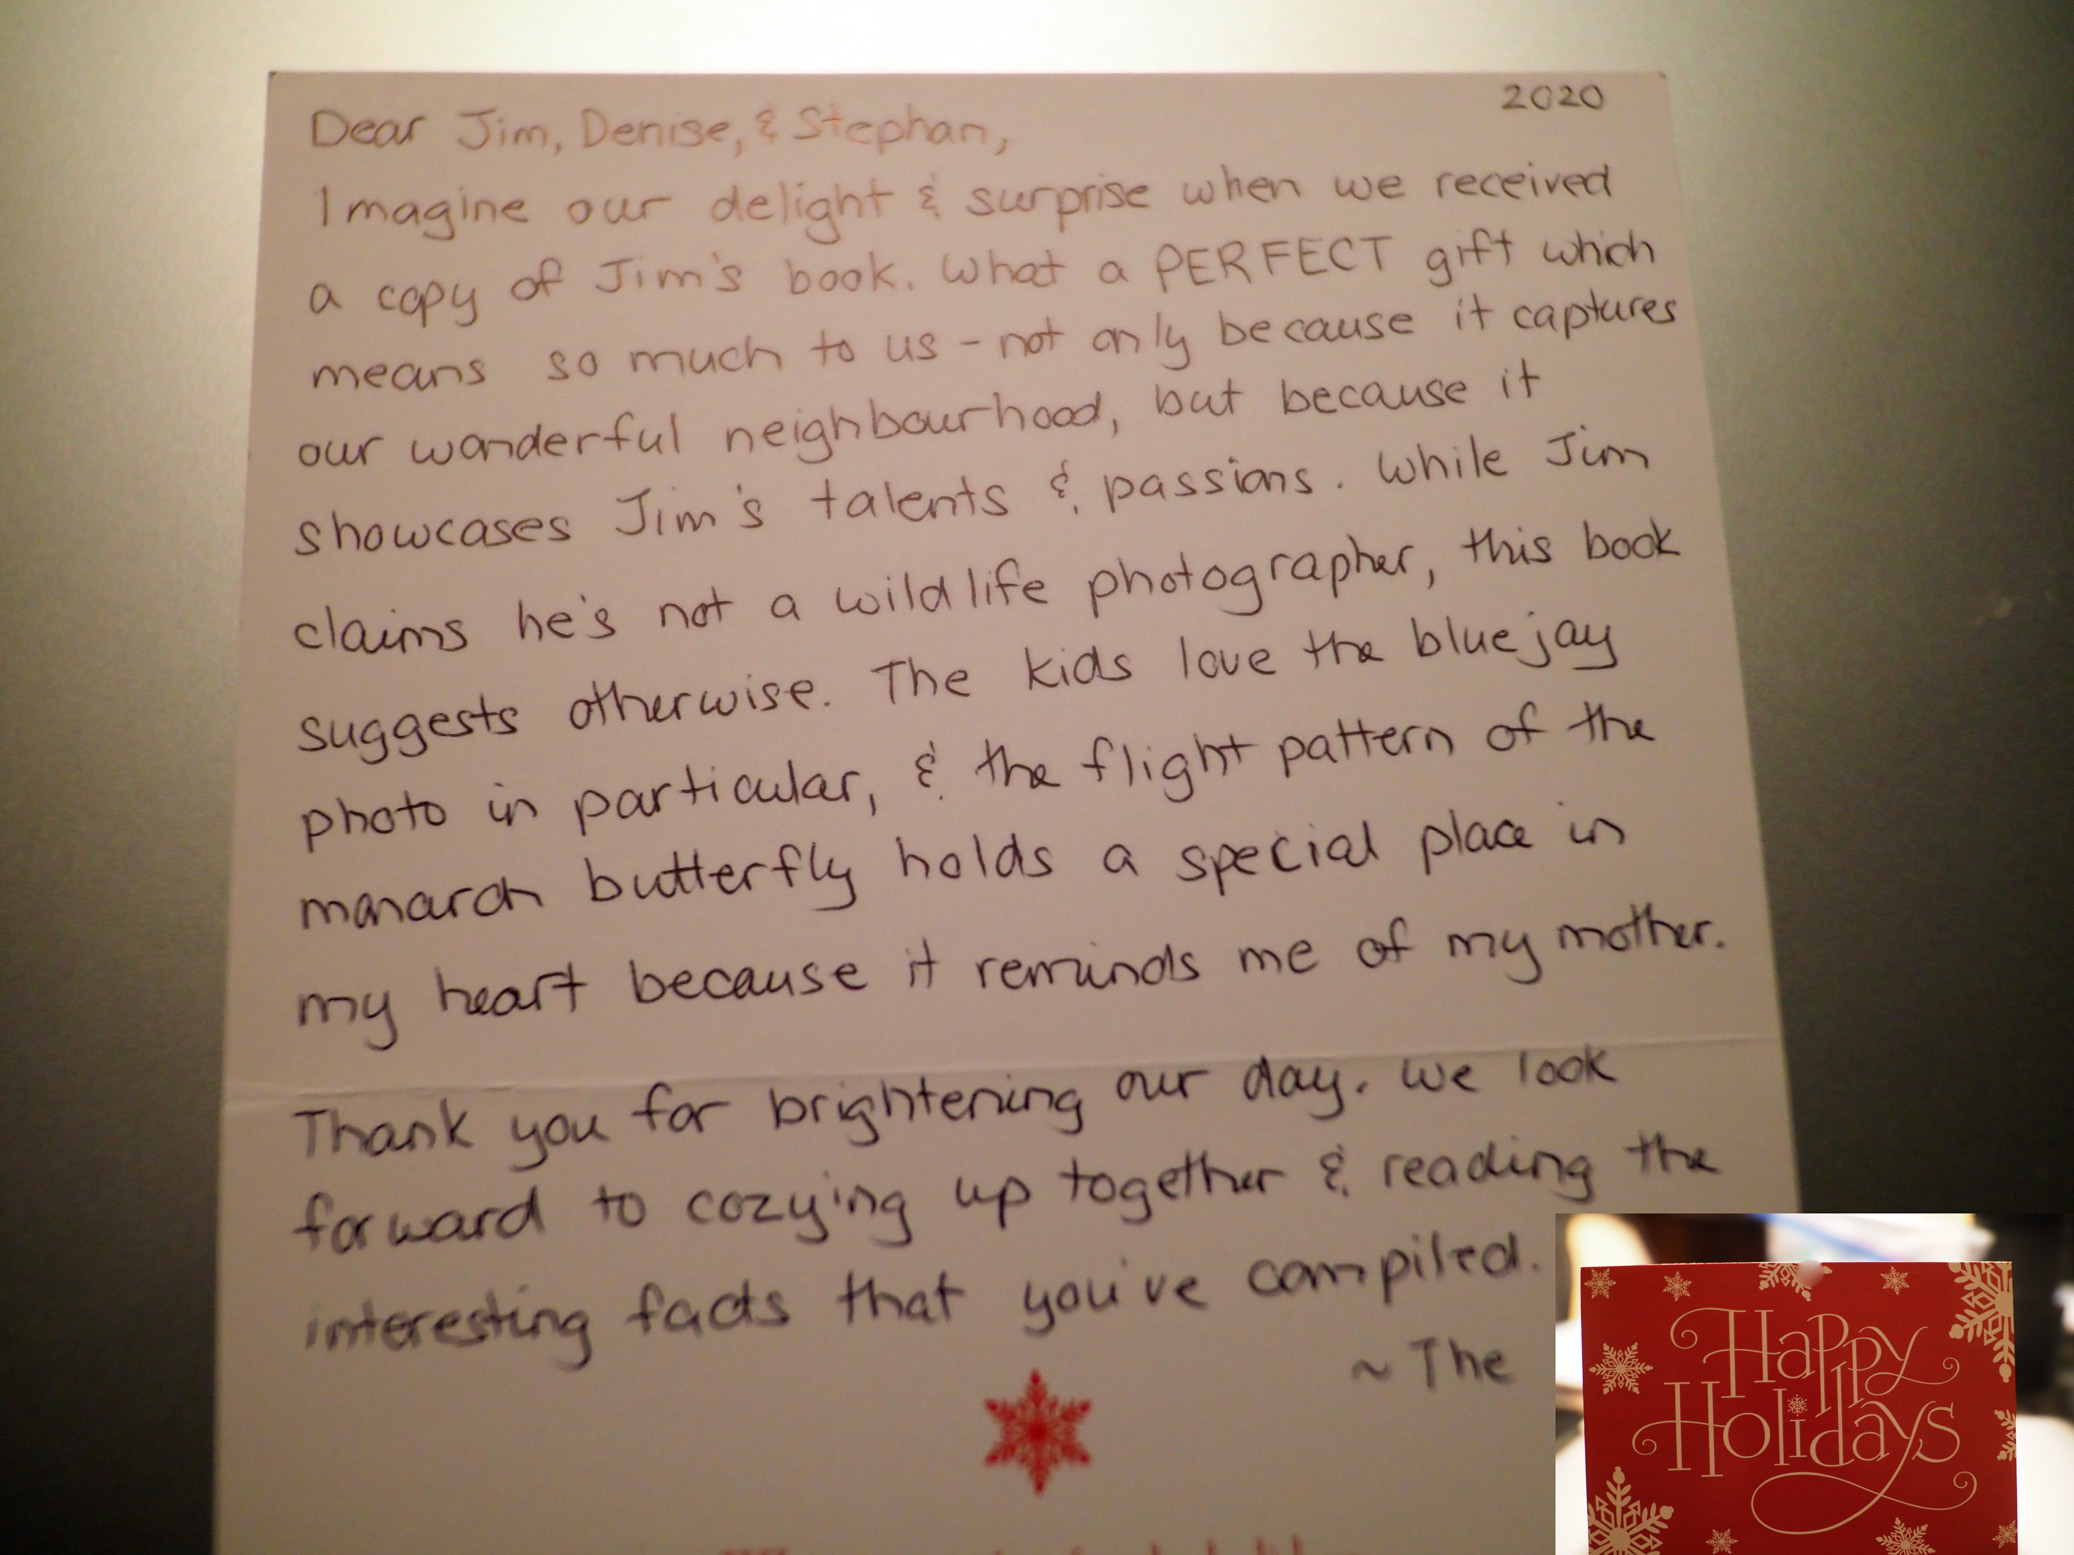 2020
Dear Jim, Denise, & Stephan,
Imagine our delight & surprise when we received
a copy of Jim's book. What a PERFECT gift which
means so much to us - not only because it captures
our wonderful neighbourhood, but because it
showcases Jim's talents & passions. While Jim
claims he's not a wildlife photographer, this book
suggests otherwise. The kids love the bluejay
photo in particular, & the flight pattern of the
monarch butterfly holds a special place in
my heart because it reminds me of my mother.
Thank you for brightening our day. We look
forward to cozying up together & reading the
interesting facts that you've compiled.
~ The
Happy
Holidays